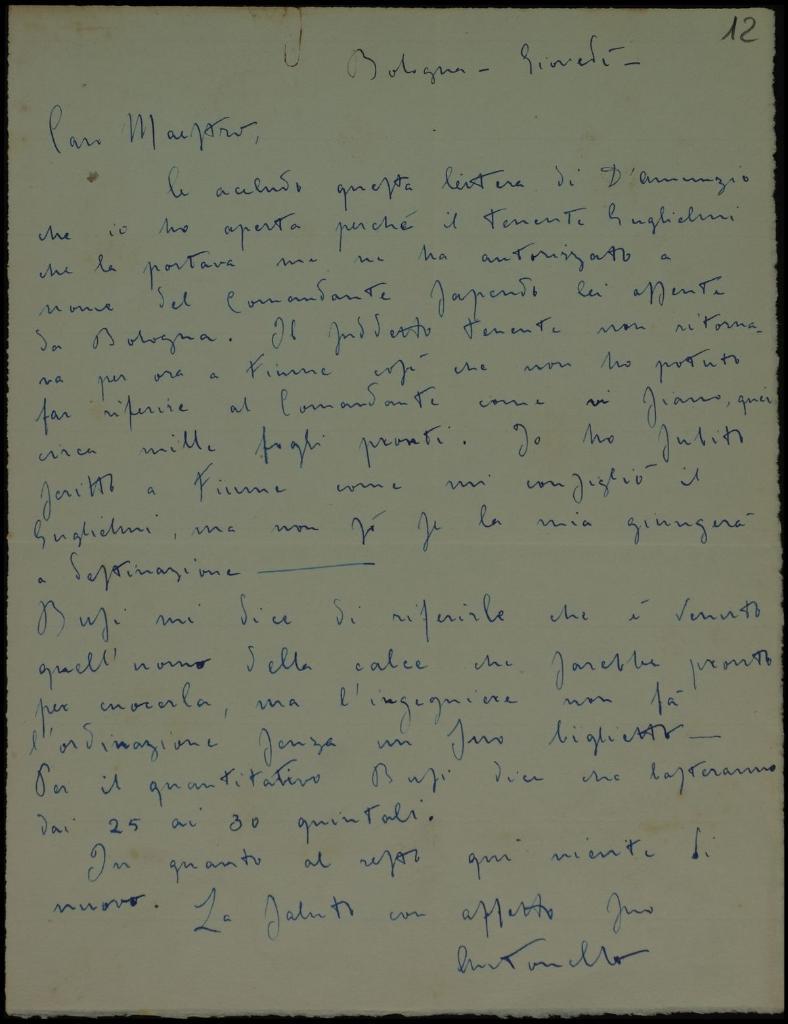 12
Bologna - Giovedì -
Caro Maestro,
le accludo questa lettera di D'Annunzio
che io ho aperta perché il tenente Guglielmi
che la portava me ne ha autorizzato a
nome del Comandante sapendo lei assente
da Bologna. Il suddetto tenente non ritorna-
va per ora a Fiume così che non ho potuto
far riferire al Comandante come vi siano, quei
circa mille fogli pronti. Io ho subito
scritto a Fiume come mi consigliò il
Guglielmi, ma non so se la mia giungerà
a destinazione
Busi mi dice di riferirle che è venuto
quell'uomo della calce che sarebbe pronto
per cuocerla, ma l'ingegniere non fà
l'ordinazione senza un suo biglietto -
Per il quantitativo Busi dice che basteranno
dai 25 ai 30 quintali.
In quanto al resto qui niente di
nuovo. La saluto con affetto suo
Antonello